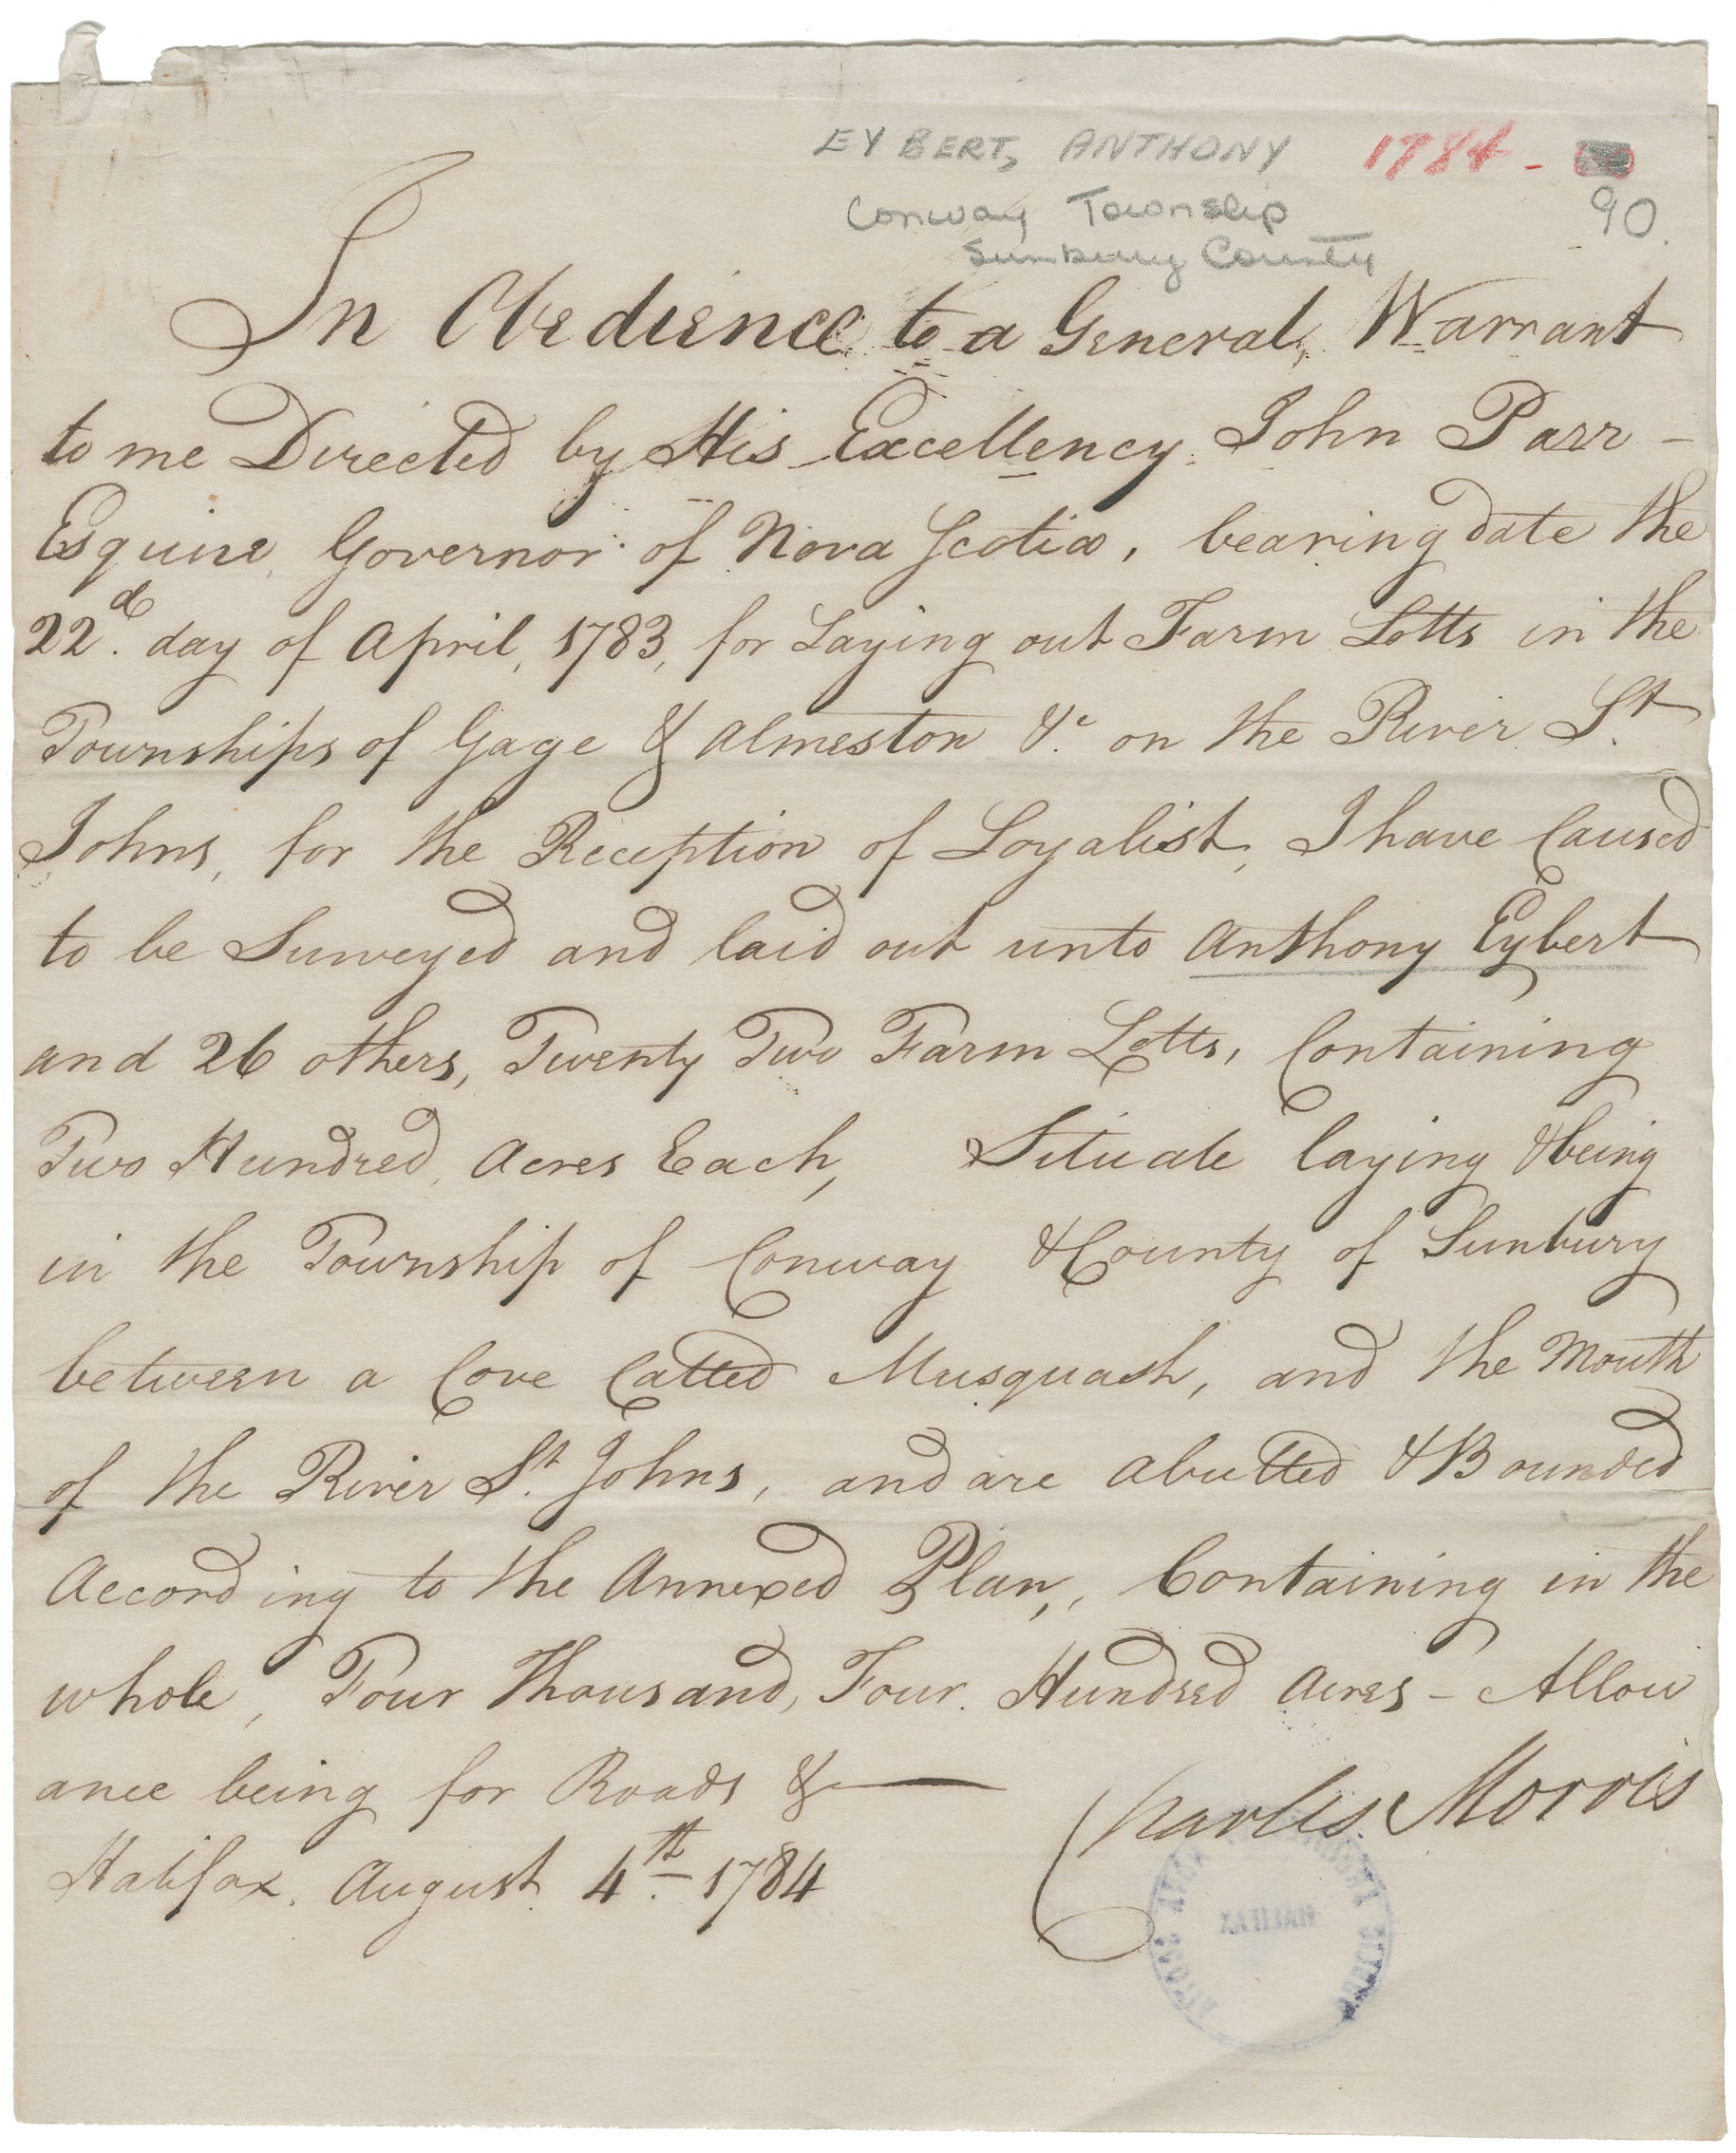 EYBERT, ANTHONY 1784 -
Conway Township 90.
Sunbury County
In Obedience to a General, Warrant
to me Directed by His Excellency John Parr -
Esquire, Governor of Nova Scotia, bearing date the
22d. day of April, 1783, for Laying out Farm Lotts in the
Townships of Gage & Almeston &c. on the River St.
Johns, for the Reception of Loyalist, I have Caused
to be Surveyed and laid out unto Anthony Eybert
and 26 others, Twenty Two Farm Lotts, Containing
Two Hundred, Acres Each, Situate laying & being
in the Township of Conway & County of Sunbury
between a Cove Called Musquash, and the Mouth
of the River St. Johns, and are abutted & Bounded
According to the Annexed Plan, Containing in the
whole, Four Thousand, Four Hundred Acres - Allow
ance being for Roads &
Charles Morris
Halifax, August 4th. 1784
HALIFAX